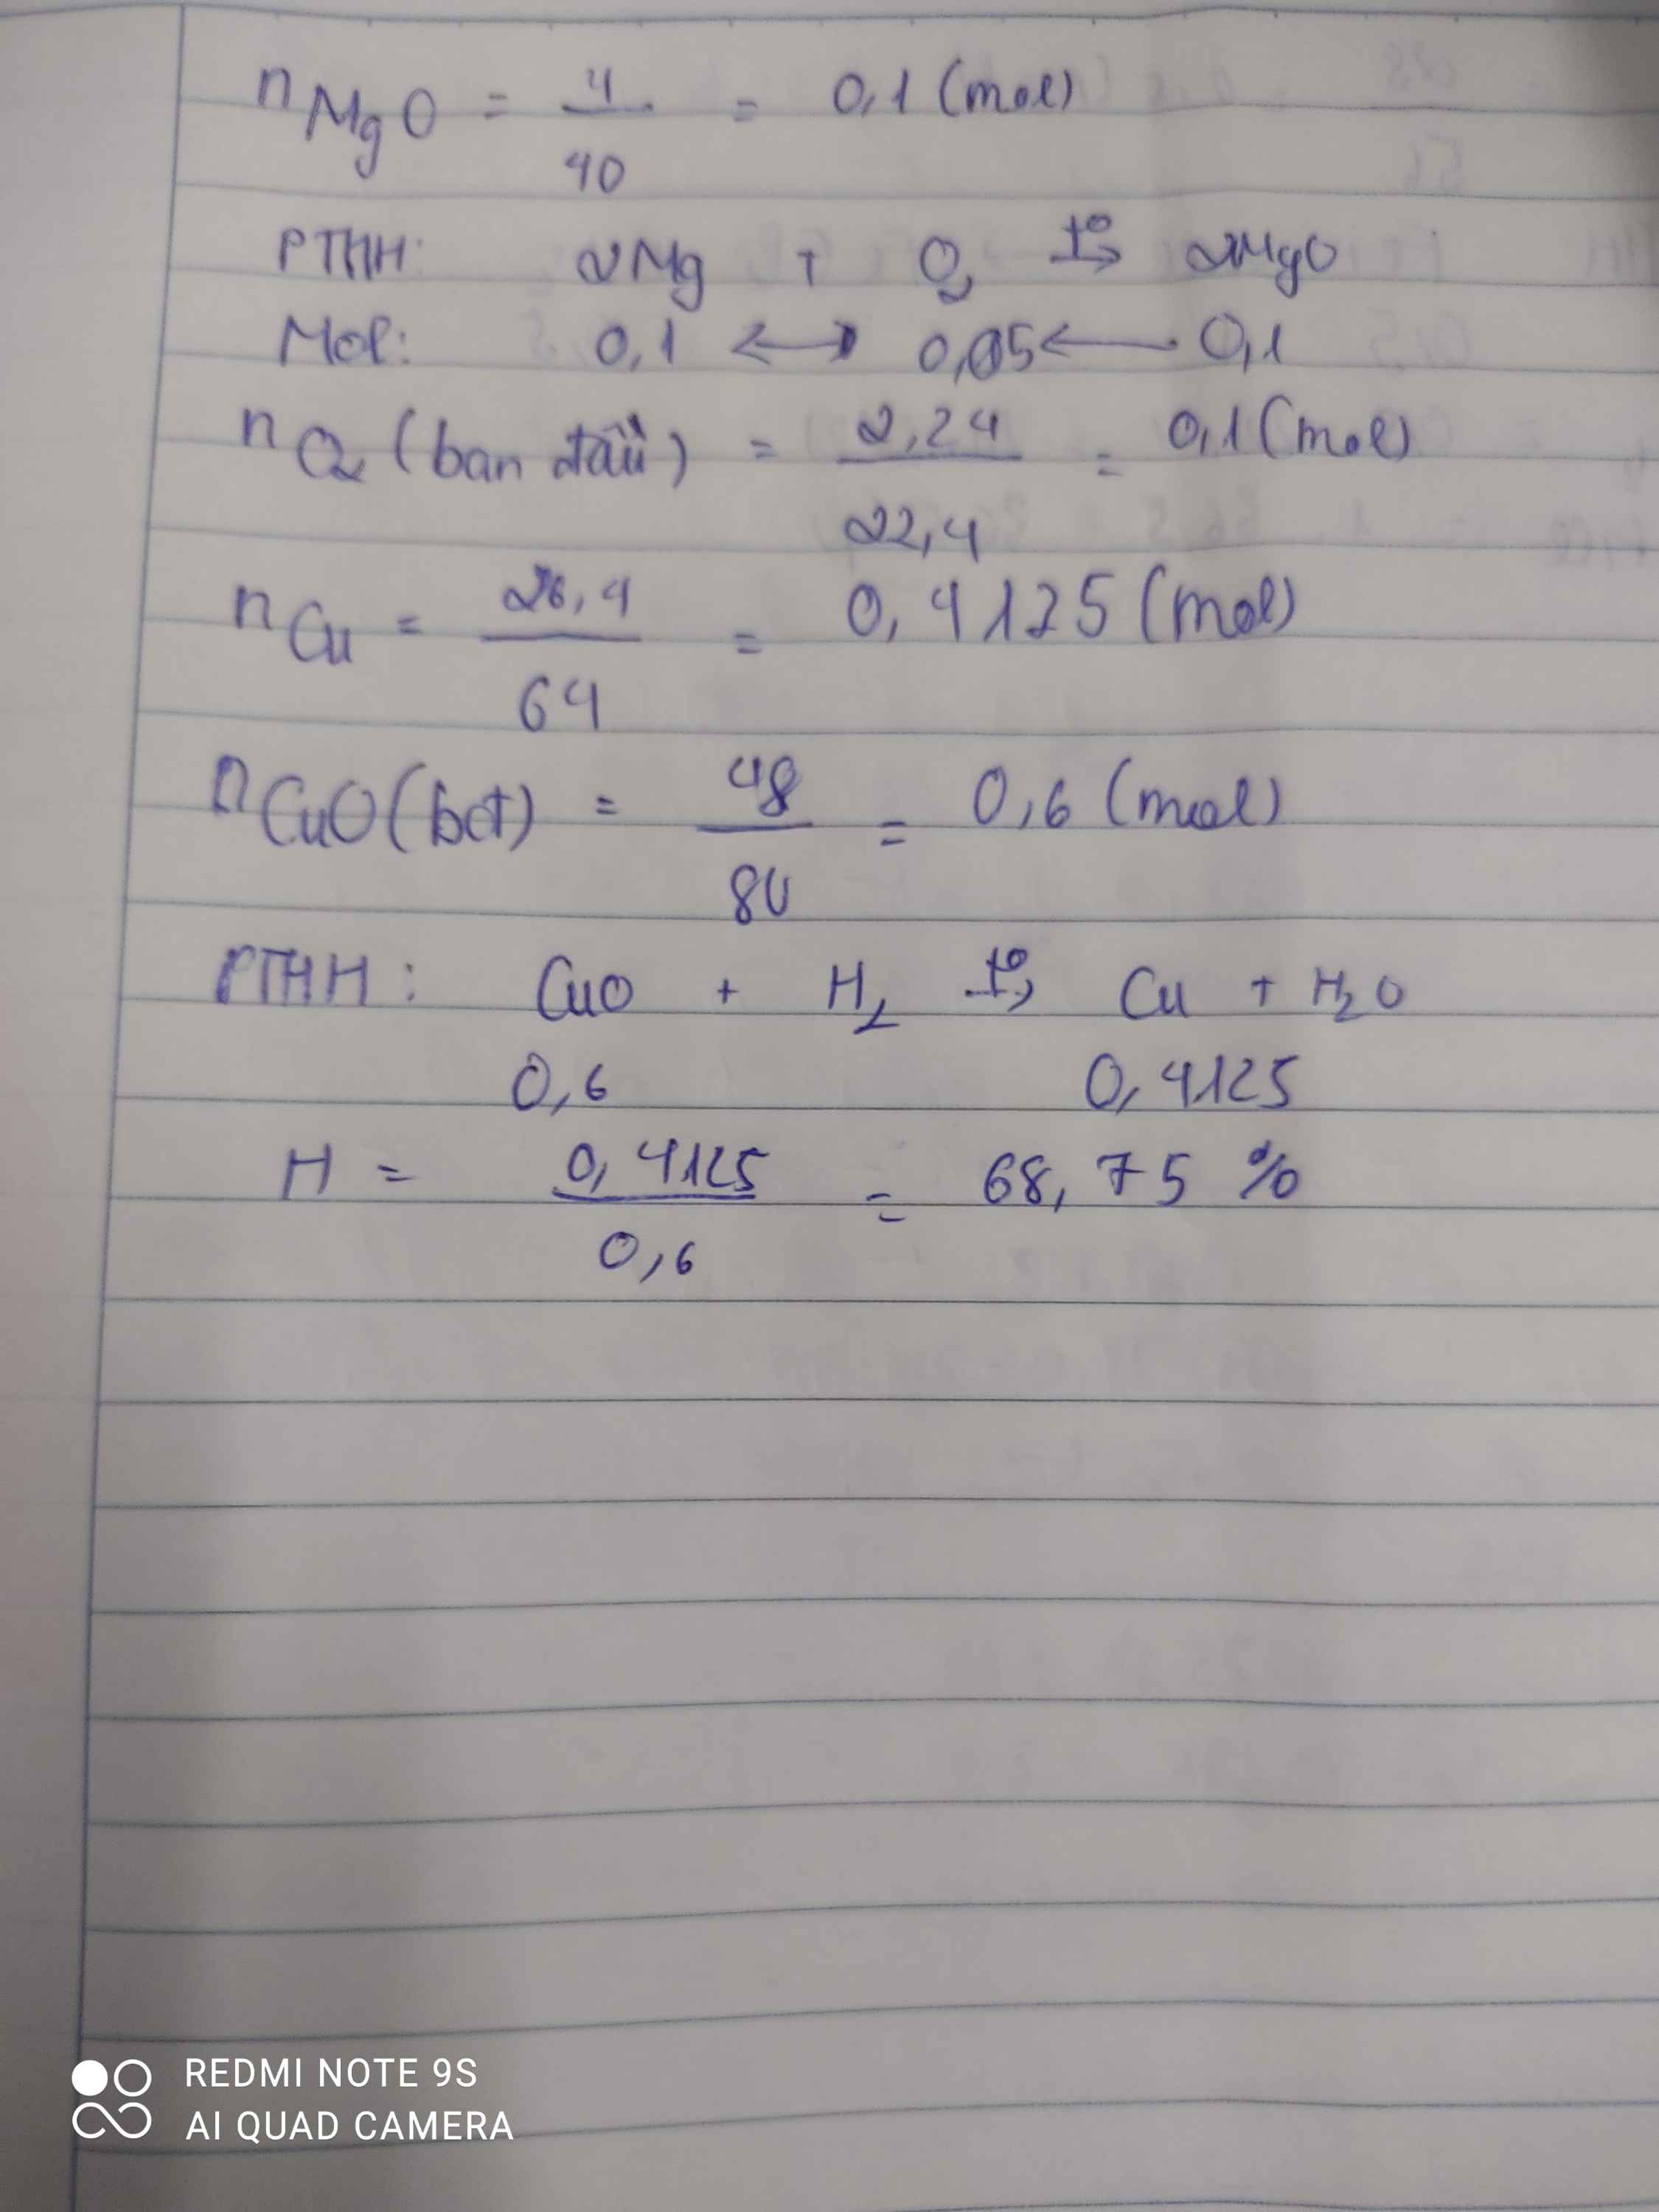 nMgO = 4/40 = 0,1 (mol)
PTHH: 2Mg + O2 t°→ 2MgO
Mol: 0,1 ←→ 0,05 ←— 0,1
nO2 (ban đầu) = 2,24/22,4 = 0,1 (mol)
nCu = 26,4/64 = 0,4125 (mol)
nCuO (bot) = 48/80 = 0,6 (mol)
PTHH: CuO + H2 t°→ Cu + H2O
0,6 0,4125
H = 0,4125/0,6 = 68,75 %
REDMI NOTE 9S
AI QUAD CAMERA